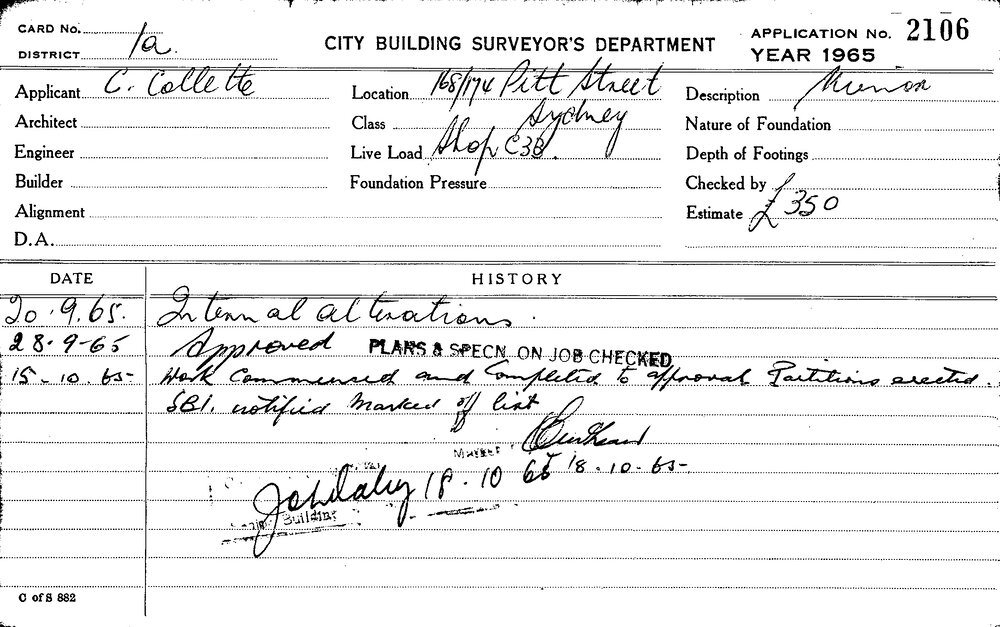 CARD No.
DISTRICT 1a.
CITY BUILDING SURVEYOR'S DEPARTMENT
APPLICATION No. 2106
YEAR 1965
Applicant C. Collette
Location 168/174 Pitt Street
Sydney
Description Minor
Architect
Class
Nature of Foundation
Engineer
Live Load Shop C3B.
Depth of Footings
Builder
Foundation Pressure
Checked by
Alignment
Estimate £350
D.A.
DATE HISTORY
20.9.65. Internal alterations.
28-9-65 Approved PLANS & SPECN. ON JOB CHECKED
15.10.65- Work Commenced and Completed to approval Partitions erected.
SBI. notified Marked off list
18.10.65-
18.10 65
Building
C of S 882